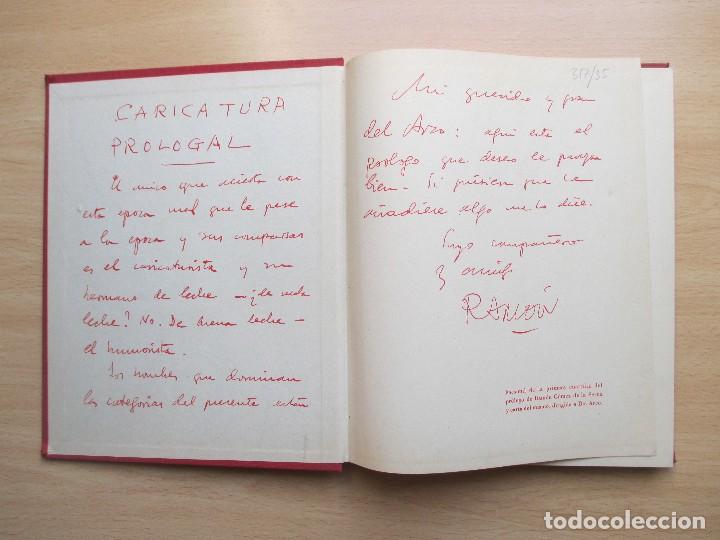 CARICATURA
PROLOGAL
El unico que acierta con
esta epoca mal que le pese
a la epoca y sus comparsas
es el caricaturista y su
hermano de leche — ¿de mala
leche? No. De buena leche —
el humorista.
Los hombres que dominan
las categorías del presente están
317/35
Mi querido y gran
del Arco: aqui esta el
prologo que deseo le parezca
bien. Si quisiera que le
añadiese algo me lo dice.
Suyo compañero
y amigo
RAMÓN
Facsímil de la primera cuartilla del
prólogo de Ramón Gómez de la Serna
y carta del mismo, dirigida a Del Arco.
todocoleccion.net